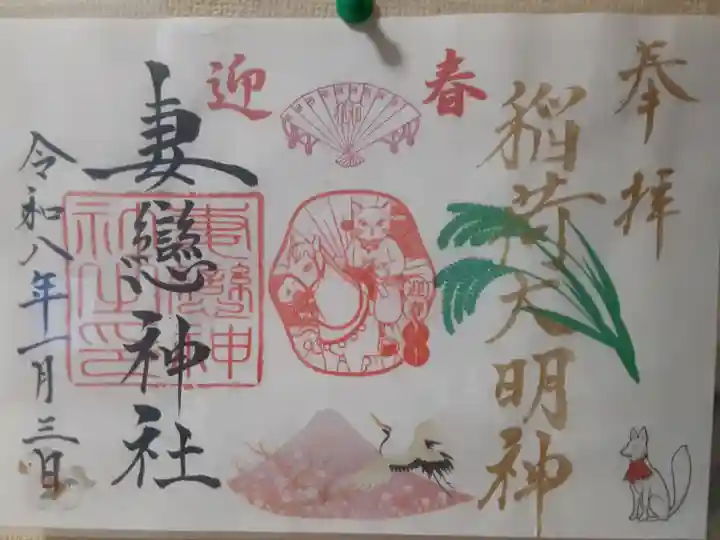 奉拝
稲荷大明神
迎春
妻戀神社
令和八年一月三日